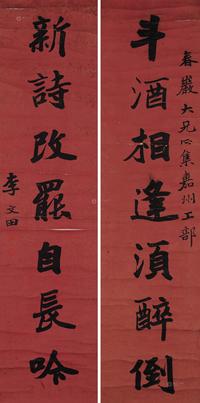 斗酒相逢須醉倒
春巖大兄心集嘉州工部
新詩改罷自長吟
李文田